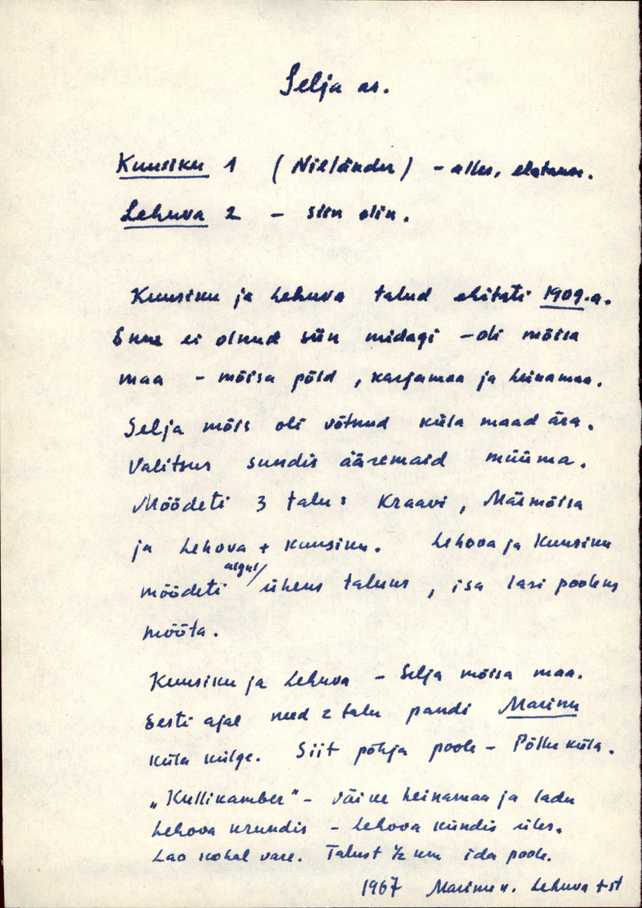 Selja as.
Kuusiku 1 (Nieländer) - alles, elatanu.
Lehuva 2 - siin olin.
Kuusiku ja Lehuva talud ehitati 1909.a.
Enne ei olnud siin midagi - oli mõisa
maa - mõisa põld, karjamaa ja heinamaa.
Selja mõis oli võtnud küla maad ära.
Valitsus sundis ääremaid müüma.
Mõõdeti 3 talu: Kraavi, Mäemõisa
ja Lehova + Kuusiku. Lehova ja Kuusiku
mõõdeti algul/ üheks taluks, isa lasi pooleks
mõõta.
Kuusiku ja Lehuva - Selja mõisa maa.
Eesti ajal need 2 talu pandi Marinu
küla külge. Siit põhja poole - Põllu küla.
"Kullikamber" - väike heinamaa ja ladu
Lehova krundis - Lehova kündis üles.
Lao kohal vare. Talust 1/2 km ida pool.
1967 Marinu k. Lehuva t-st